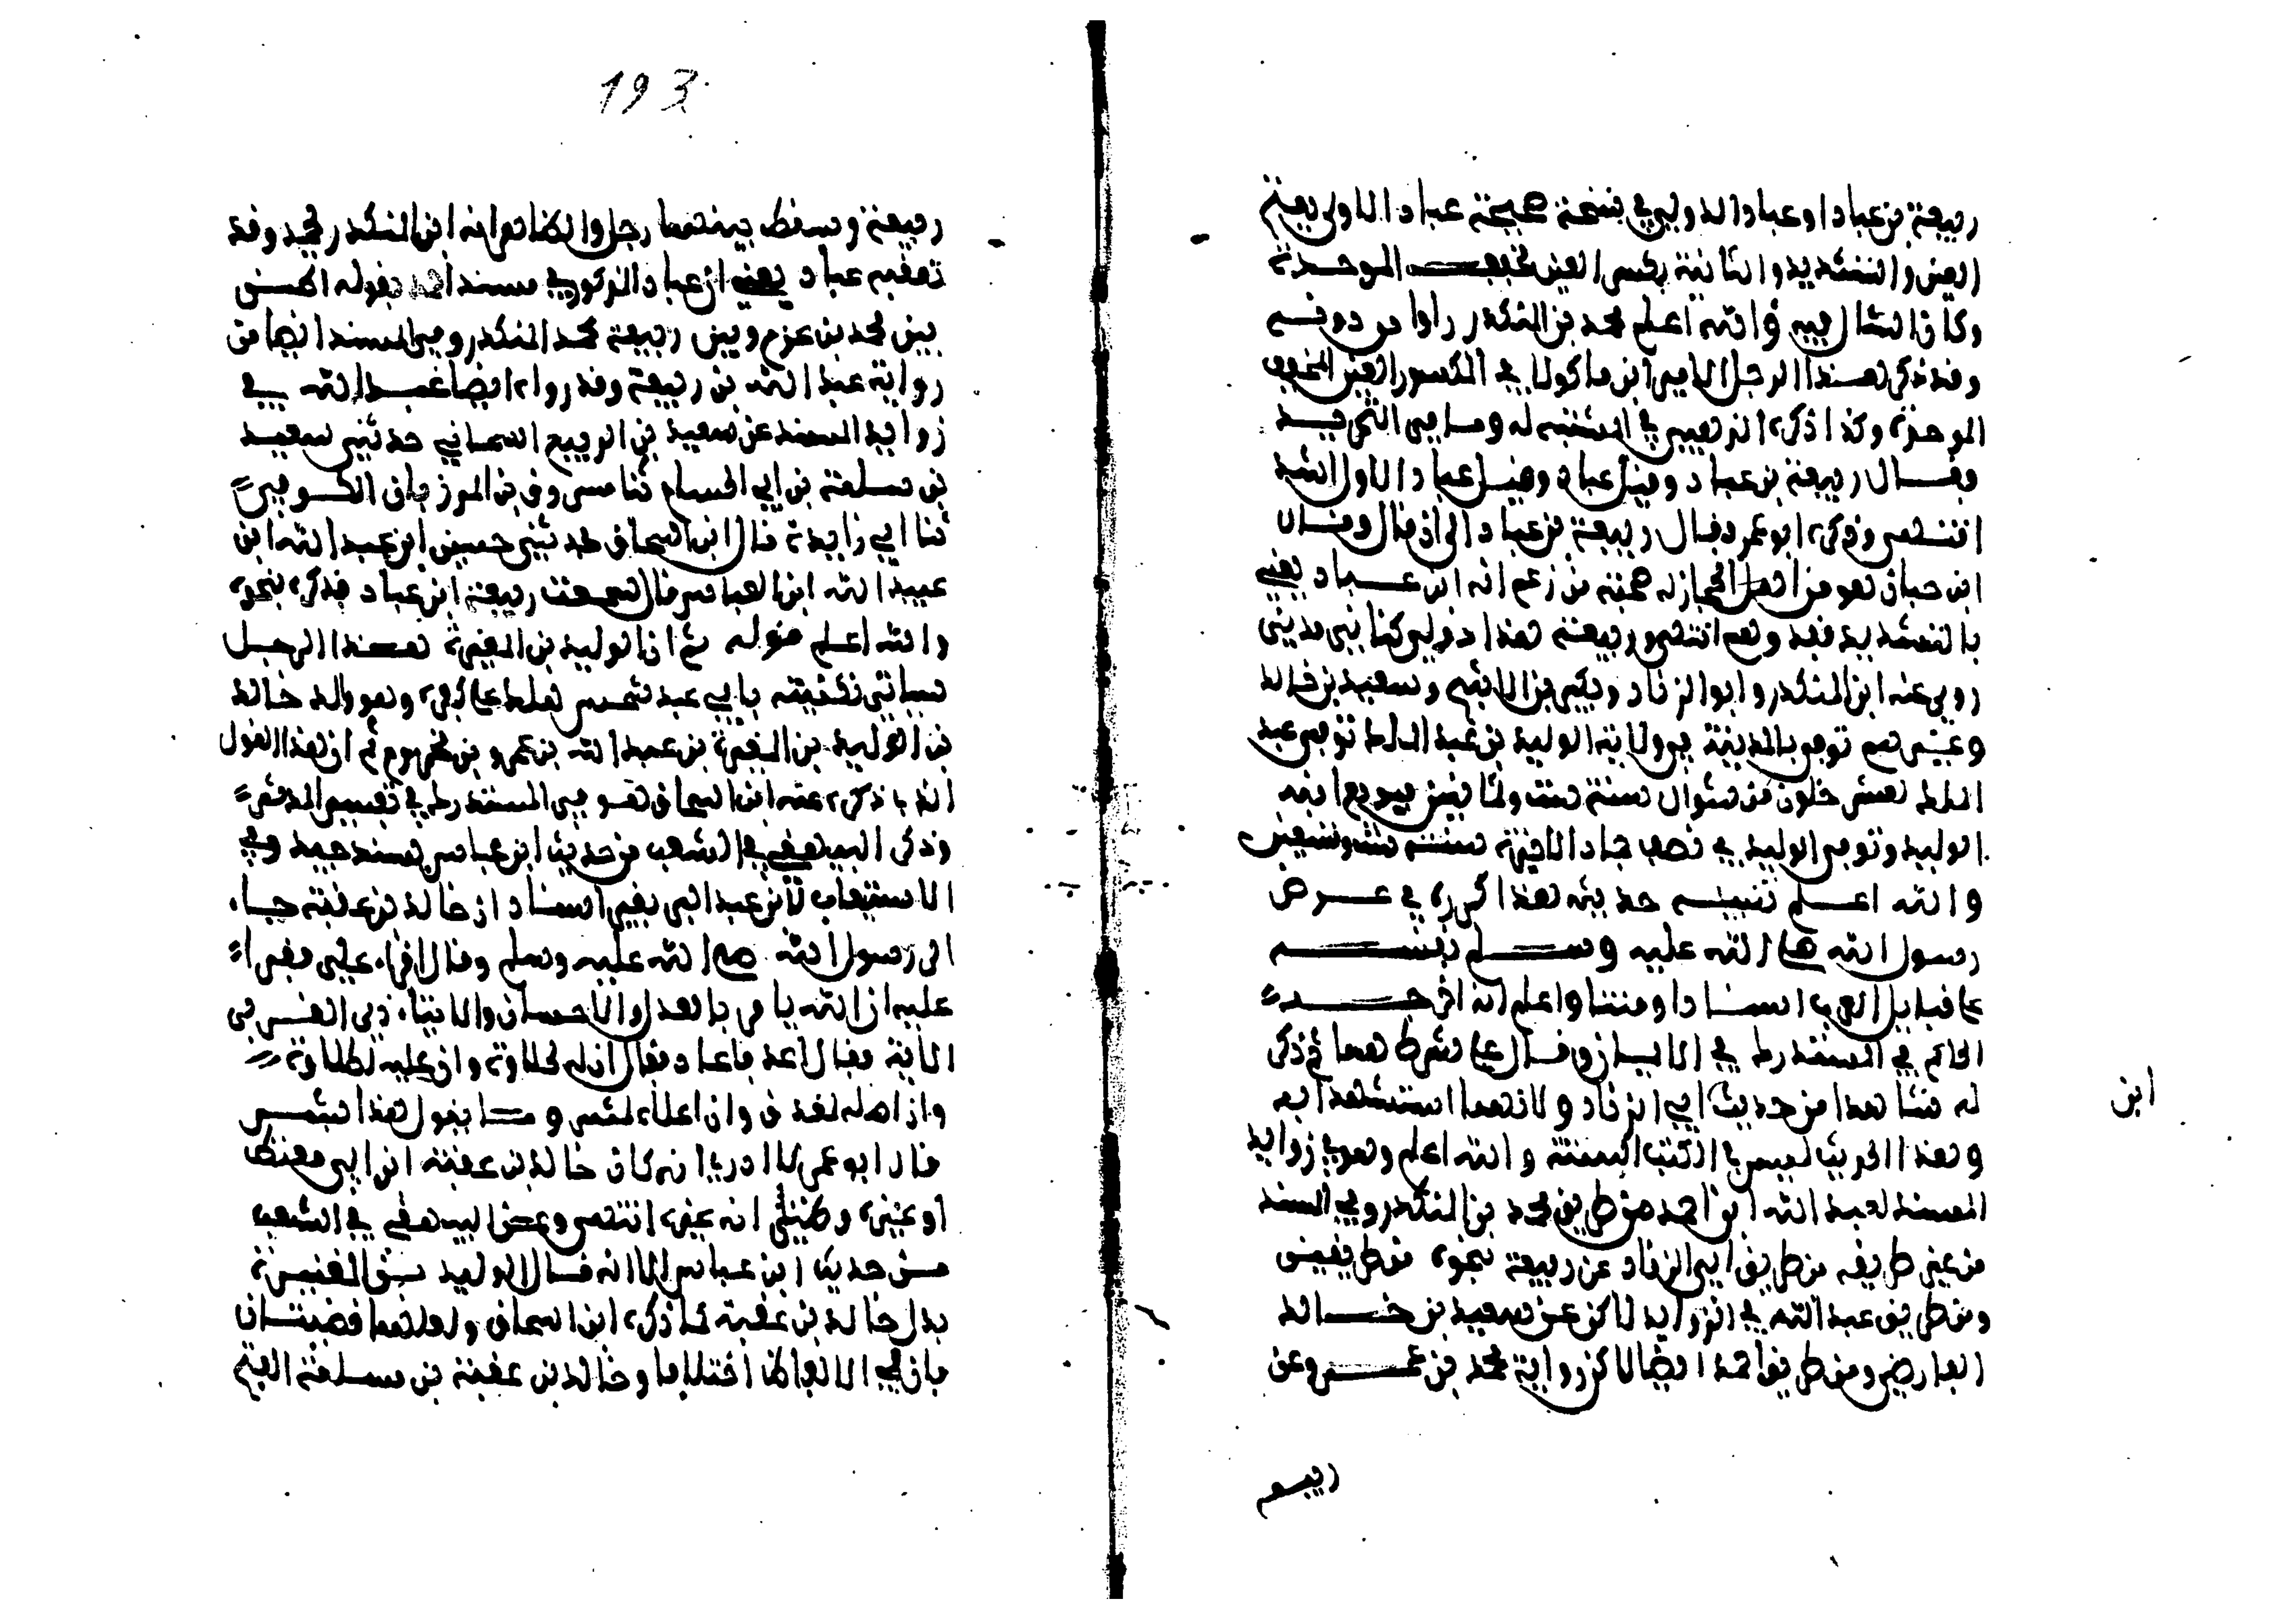 ربيعة بن عباد او عباد الدولي في نسخة صحيحة عباد الاولى بفتح
العين والتشديد والثانية بكسر العين وتخفيف الموحدة
وكان الشاك فيه والله اعلم محمد بن المنكدر راوا من دونه
وقد ذكر هذا الرجل الامير ابن ماكولا في المكسور العين المخفف
الموحدة وكذا ذكره الذهبي في المشتبه له وما في التجريد
فقال ربيعة بن عباد وقيل عباد وقيل عباد الاول اشد
انتهى وذكره ابو عمر فقال ربيعة بن عباد الى ان قال وقال
ابن حبان هو من اهل الحجاز له صحبة من زعم انه ابن عباد يعني
بالتشديد فقد وهم انتهى وربيعة هذا دولي كناني مديني
روى عنه ابن المنكدر وابو الزناد وبكير بن الاشج وسعيد بن خالد
وغيرهم توفي بالمدينة في ولاية الوليد بن عبد الملك توفي عبد
الملك لعشر خلون من شوال سنة ست وثمانين فبويع ابنه
الوليد وتوفي الوليد في نصف جماد الاخيرة سنة ست وتسعين
والله اعلم تنبيه حديثه هذا كرره في عرض
رسول الله صلى الله عليه وسلم نفسه
على قبايل العرب اسنادا ومتنا واعلم انه اخرجه
الحاكم في المستدرك في الايمان وقال على شرطهما ثم ذكر
له شاهدا من حديث ابي الزناد ولانهما استشهدا به
ابن
وهذا الحديث ليس في الكتب الستة والله اعلم وهو في زوايد
المسند لعبد الله ابن احمد من طريق محمد بن المنكدر وفي المسند
من غير طريقه من طريق ابي الزناد عن ربيعة نحوه من طريقين
ومن طريق عبد الله في الزوايد لاكن عن سعيد بن خالد
القارضي ومن طريق احمد ايضا لاكن رواية محمد بن عمرو عن
ربيعه
193
ربيعة وسقط بينهما رجل والظاهر انه ابن المنكدر محمد وقد
تعقبه عباد يعني ابن عباد المذكور في مسند احمد بقوله الحسن
بين محمد بن عمرو وبين ربيعة محمد المنكدر وفي المسند ايضا من
رواية عبد الله بن ربيعة وقد رواه ايضا عبد الله في
زوايد المسند عن سعيد بن الربيع السماني حدثني سعيد
بن سلمة بن ابي الحسام ثنا مسروق بن المرزبان الكوفي
ثنا ابي زايدة قال ابن اسحاق حدثني حسين ابن عبد الله ابن
عبيد الله ابن العباس قال سمعت ربيعة ابن عباد فذكره بنحوه
والله اعلم قوله ثم ان الوليد بن المغيرة هذا الرجل
سياتي تكنيته بابي عبد شمس هلك على كفره وهو والد خالد
بن الوليد بن المغيرة بن عبد الله بن عمرو بن مخزوم ثم ان هذا القول
الذي ذكره عنه ابن اسحاق هو في المستدرك في تفسير المدثر
وذكر البيهقي في الشعب من حديث ابن عباس بسند جيد وفي
الاستيعاب لابن عبد البر بغير اسناد ان خالد بن عقبة جاء
الى رسول الله صلى الله عليه وسلم وقال اقرا علي فقرا
عليه ان الله يامر بالعدل والاحسان وايتاء ذي القربى
الاية فقال اعد فاعاد فقال ان له لحلاوة وان عليه لطلاوة
وان اسفله لغدق وان اعلاه لمثمر وما يقول هذا بشر
قال ابو عمر لا ادري انه كان خالد بن عقبة ابن ابي معيط
او غيره وظني انه غيره انتهى وعن البيهقي في الشعب
من حديث ابن عباس الا انه قال الوليد بن المغيرة
بدل خالد بن عقبة كما ذكره ابن اسحاق ولعلهما قضيتان
فان في الالفاظ اختلافا وخالد بن عقبة بن مسلمة الفتح